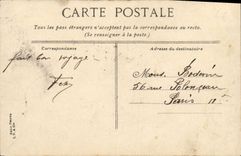 CARTE POSTALE
Tous les pays étrangers n'acceptent pas la correspondance au recto.
(Se renseigner à la poste.)
Correspondance
Adresse du destinataire
fait bon voyage
Mons. Bodovin
56 rue Polonceau
Paris 18e